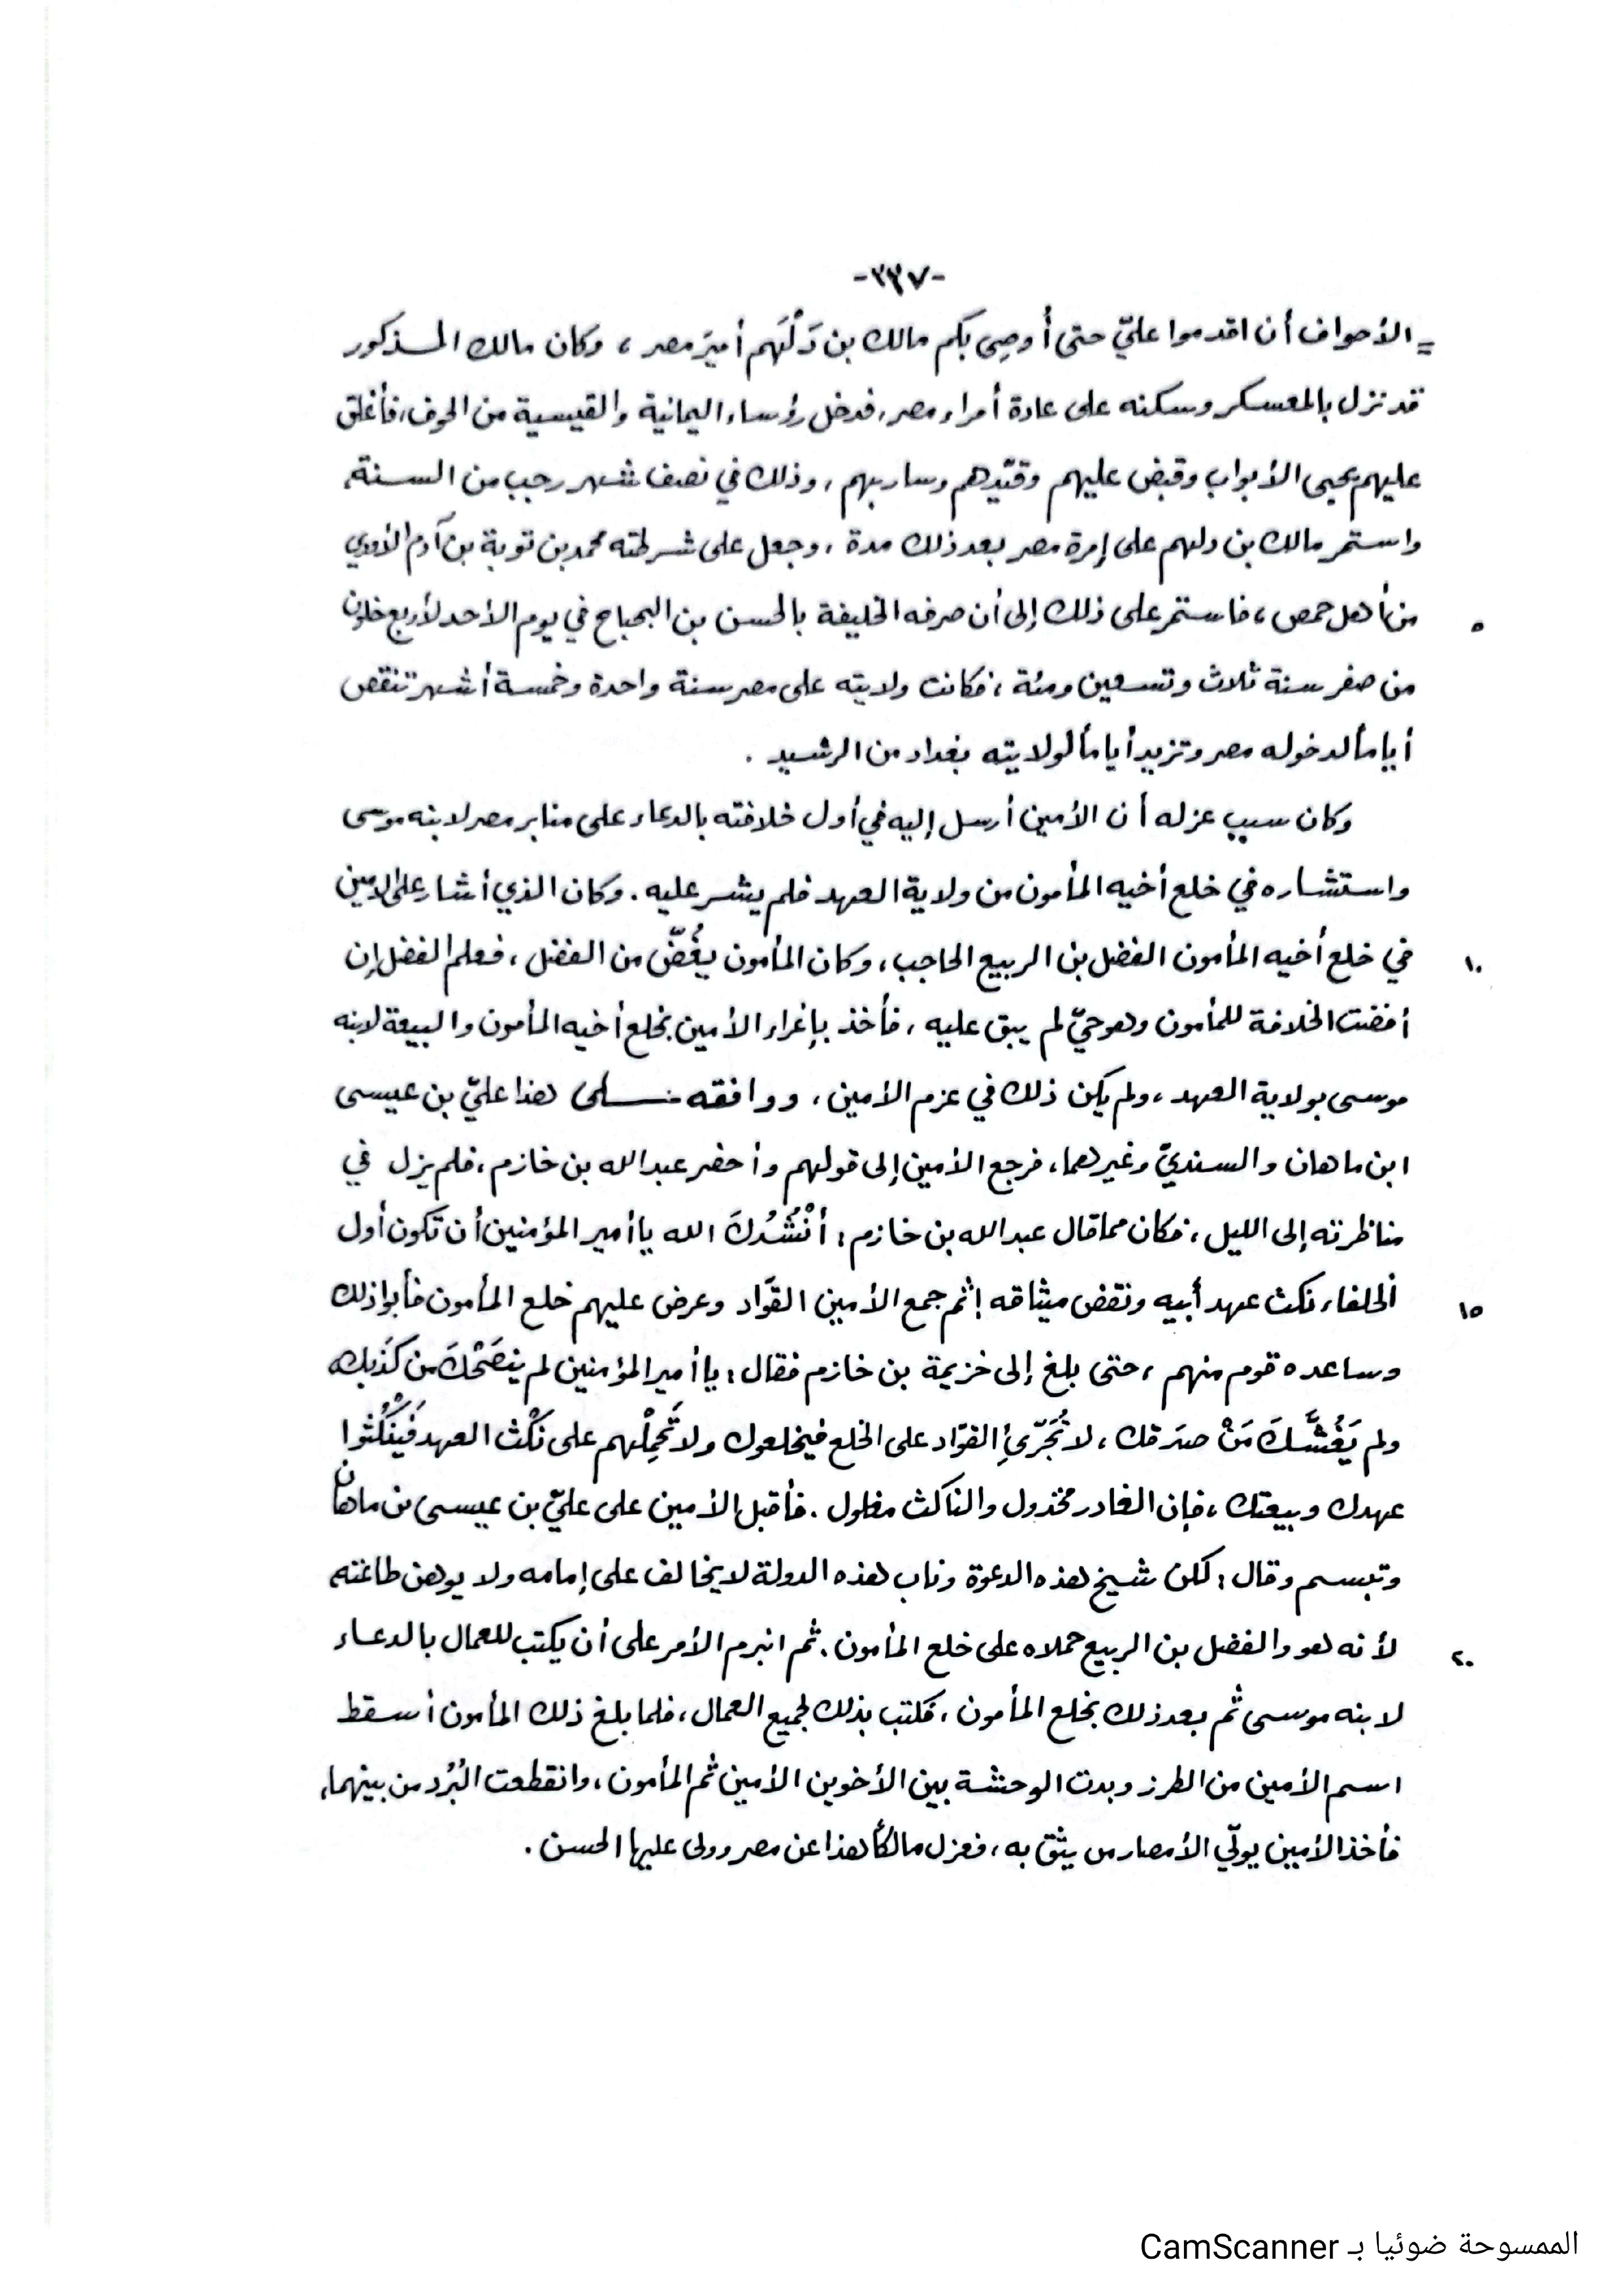 -٣٣٧-
= الأحواف أن اقدموا عليّ حتى أُوصِي بكم مالك بن دَلْهَم أميرَ مصر ، وكان مالك المذكور
قد نزل بالمعسكر وسكنه على عادة أمراء مصر، فدخل رؤساء اليمانية والقيسية من الحوف، فأغلق
عليهم يحيى الأبواب وقبض عليهم وقيّدهم وسار بهم ، وذلك في نصف شهر رجب من السنة،
واستمر مالك بن دلهم على إمرة مصر بعد ذلك مدة ، وجعل على شرطته محمد بن توبة بن آدم الأودي
من أهل حمص ، فاستمر على ذلك إلى أن صرفه الخليفة بالحسن بن البحباح في يوم الأحد لأربع خلون
٥
من صفر سنة ثلاث وتسعين ومئة ، فكانت ولايته على مصر سنة واحدة وخمسة أشهر تنقص
أياماً لدخوله مصر وتزيد أياماً لولايته بغداد من الرشيد .
وكان سبب عزله أن الأمين أرسل إليه في أول خلافته بالدعاء على منابر مصر لابنه موسى
واستشاره في خلع أخيه المأمون من ولاية العهد فلم يشر عليه . وكان الذي أشار على الامين
في خلع أخيه المأمون الفضل بن الربيع الحاجب ، وكان المأمون يغُضّ من الفضل ، فعلم الفضل إن
١٠
أفضت الخلافة للمأمون وهو حيّ لم يبق عليه ، فأخذ بإغراء الأمين بخلع أخيه المأمون والبيعة لابنه
موسى بولاية العهد ، ولم يكن ذلك في عزم الأمين ، ووافقه على هذا عليّ بن عيسى
ابن ماهان والسنديّ وغيرهما، فرجع الأمين إلى قولهم وأحضر عبد الله بن خازم ، فلم يزل في
مناظرته إلى الليل ، فكان مما قال عبد الله بن خازم : أنْشُدُكَ الله يا أمير المؤمنين أن تكون أول
الخلفاء نكث عهد أبيه ونقض ميثاقه ! ثم جمع الأمين القوّاد وعرض عليهم خلع المأمون فأبوا ذلك
١٥
وساعده قوم منهم ، حتى بلغ إلى خزيمة بن خازم فقال : يا أمير المؤمنين لم ينصَحْكَ من كَذَبك
ولم يَغُشَّكَ مَنْ صدَقك ، لا تُجَرّئِ القوّاد على الخلع فيخلعوك ولا تَحْمِلْهم على نَكْث العهد فَيَنْكُثوا
عهدك وبيعتك ، فإن الغادر مخذول والناكث مغلول . فأقبل الأمين على عليّ بن عيسى بن ماهان
وتبسم وقال : لكن شيخ هذه الدعوة وناب هذه الدولة لا يخالف على إمامه ولا يوهن طاعته
لأنه هو والفضل بن الربيع حملاه على خلع المأمون . ثم انبرم الأمر على أن يكتب للعمال بالدعاء
٢٠
لابنه موسى ثم بعد ذلك بخلع المأمون ، فكتب بذلك لجميع العمال ، فلما بلغ ذلك المأمون أسقط
اسم الأمين من الطرز وبدت الوحشة بين الأخوين الأمين ثم المأمون ، وانقطعت البُرُد من بينهما،
فأخذ الأمين يولّي الأمصار من يثق به ، فعزل مالكاً هذا عن مصر وولى عليها الحسن .
الممسوحة ضوئيا بـ CamScanner